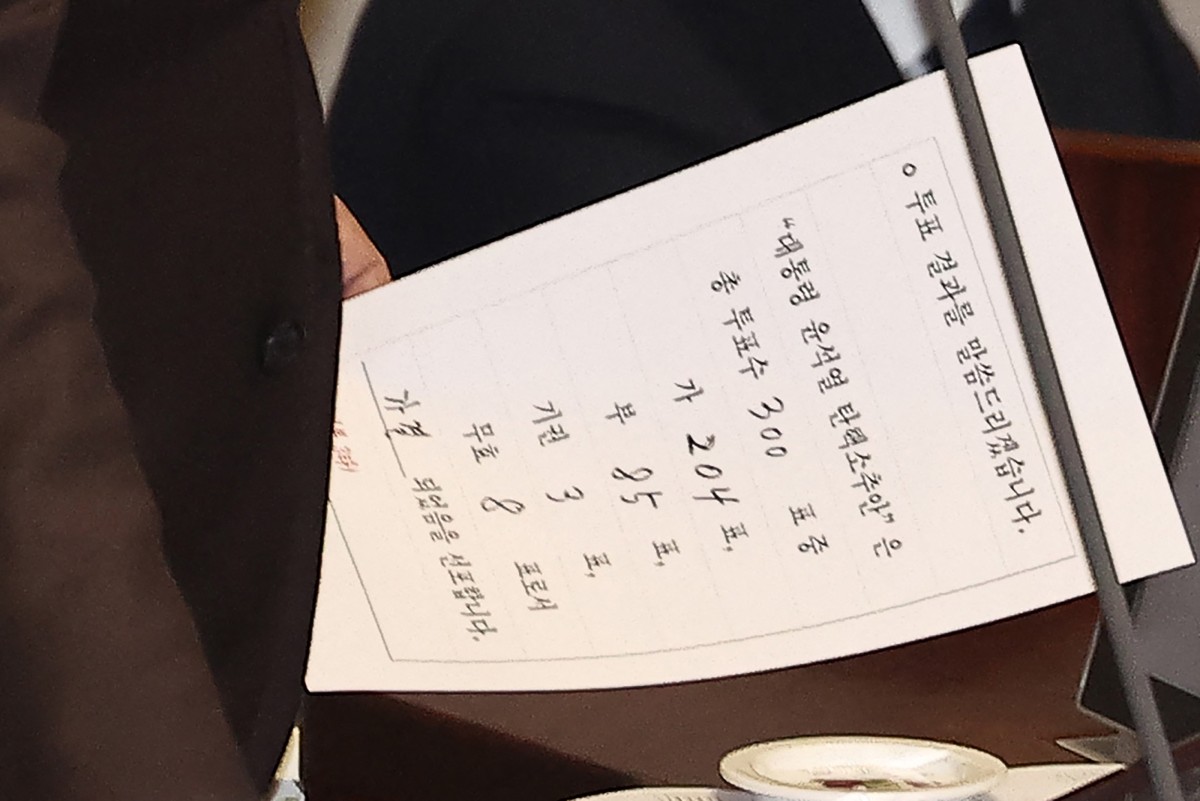 ○ 투표 결과를 말씀드리겠습니다.
“대통령 윤석열 탄핵소추안” 은
총 투표수 300 표 중
가 204 표,
부 85 표,
기권 3 표,
무효 8 표로서
가결 되었음을 선포합니다.